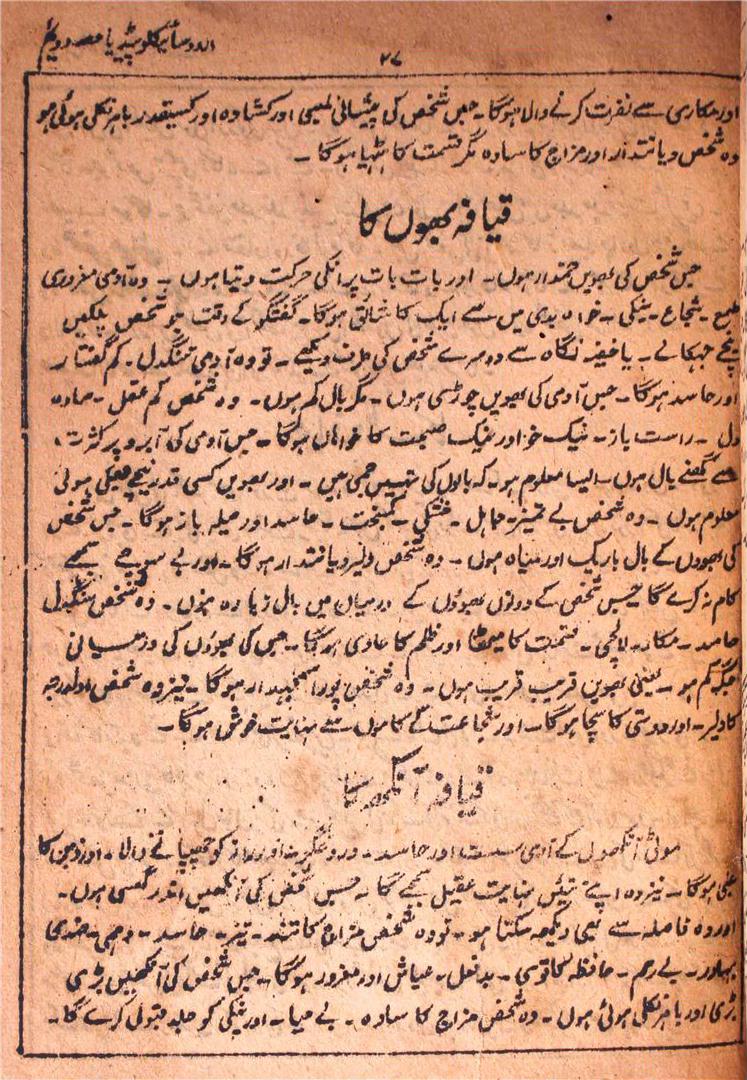 اردو سائیکلوپیڈیا حصہ دوئم
۲۷
اور مکاری سے نفرت کرنے والا ہوگا۔ جس شخص کی پیشانی لمبی اور کشادہ اور کسیقدر باہر نکلی ہوئی ہو
وہ شخص دیانتدار اور مزاج کا سادہ مگر قسمت کا ہٹیا ہوگا۔
قیافہ بھوں کا
جس شخص کی بھویں خمدار ہوں۔ اور بات بات پر انکی حرکت دیتا ہوں۔ وہ آدمی مغروری
طبع۔ شجاع۔ نیکی۔ خواہ بدی میں سے ایک کا شائق ہوگا۔ گفتگو کے وقت جو شخص پلکیں
نیچے جھکالے۔ یا خفیہ نگاہ سے دوسرے شخص کی طرف دیکھے۔ تو وہ آدمی تنگدل۔ کم گفتار
اور حاسد ہوگا۔ جس آدمی کی بھویں چوڑی ہوں۔ مگر بال کم ہوں۔ وہ شخص کم عقل۔ سادہ
دل۔ راست باز۔ نیک خو اور نیک صحبت کا خواہاں ہوگا۔ جس آدمی کی آبرو پر کثرت
سے گھنے بال ہوں۔ ایسا معلوم ہو۔ کہ بالوں کی تہیں جمی ہیں۔ اور بھویں کسی قدر نیچے جھکی ہوئی
معلوم ہوں۔ وہ شخص بے تمیز۔ جاہل۔ خشکی۔ کمبخت۔ حاسد اور حیلہ باز ہوگا۔ جس شخص
کی بھووں کے بال باریک اور سیاہ ہوں۔ وہ شخص دلیر و دیانتدار ہوگا۔ اور بے سوچے سمجھے
کام نہ کرے گا جس شخص کے دونوں بھوؤں کے درمیان میں بال زیادہ ہوں۔ وہ شخص سنگدل
حاسد۔ مکار۔ لالچی۔ قسمت کا میٹھا اور ظلم کا عادی ہوگا۔ جس کی بھوؤں کی درمیانی
جگہ کم ہو۔ یعنی بھویں قریب قریب ہوں۔ وہ شخص پورا سمجھدار ہوگا۔ نیز وہ شخص اول درجہ
کا دلیر۔ اور دوستی کا سچا ہوگا۔ اور شجاعت کے کاموں سے نہایت خوش ہوگا۔
قیافہ آنکھ کا
موٹی آنکھوں کے آدمی سست اور حاسد۔ دروغگو۔ اور راز کو چھپانے والا۔ اور ذہن کا
غبی ہوگا۔ نیز وہ اپنے تئیں نہایت عقیل سمجھے گا۔ جس شخص کی آنکھیں اندر گھسی ہوں۔
اور وہ فاصلہ سے بھی دیکھ سکتا ہو۔ تو وہ شخص مزاج کا تند۔ تیز۔ حاسد۔ وہمی۔ ضدی
بہادر۔ بے رحم۔ حافظہ کا قوی۔ بدفعل۔ عیاش اور مغرور ہوگا۔ جس شخص کی آنکھیں بڑی
بڑی اور باہر نکلی ہوئی ہوں۔ وہ شخص مزاج کا سادہ۔ بے حیا۔ اور نیکی کو جلد قبول کرے گا۔